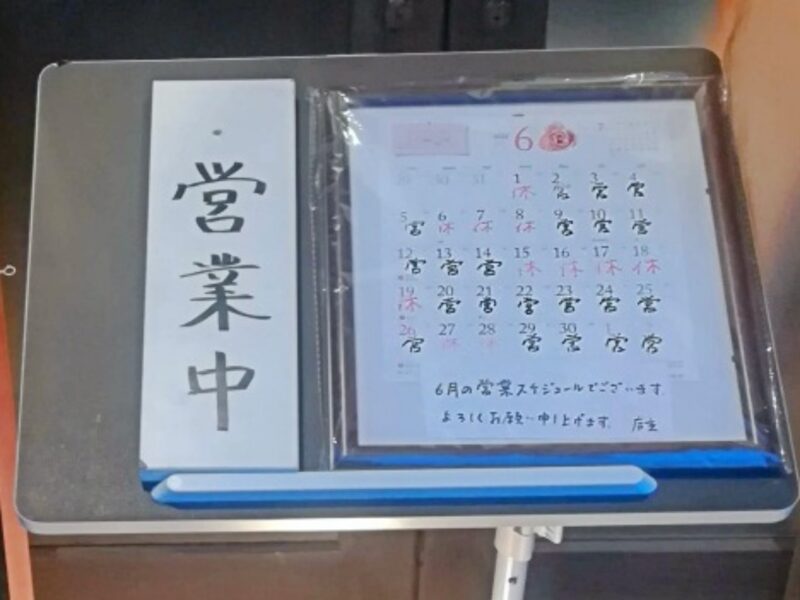 営業中
6
1 2 3 4
休 営 営 営
5 6 7 8 9 10 11
営 休 休 休 営 営 営
12 13 14 15 16 17 18
営 営 営 休 休 休 休
19 20 21 22 23 24 25
休 営 営 営 営 営 営
26 27 28 29 30 1
営 休 休 営 営 営 営
6月の営業スケジュールでございます。
よろしくお願い申し上げます。 店主